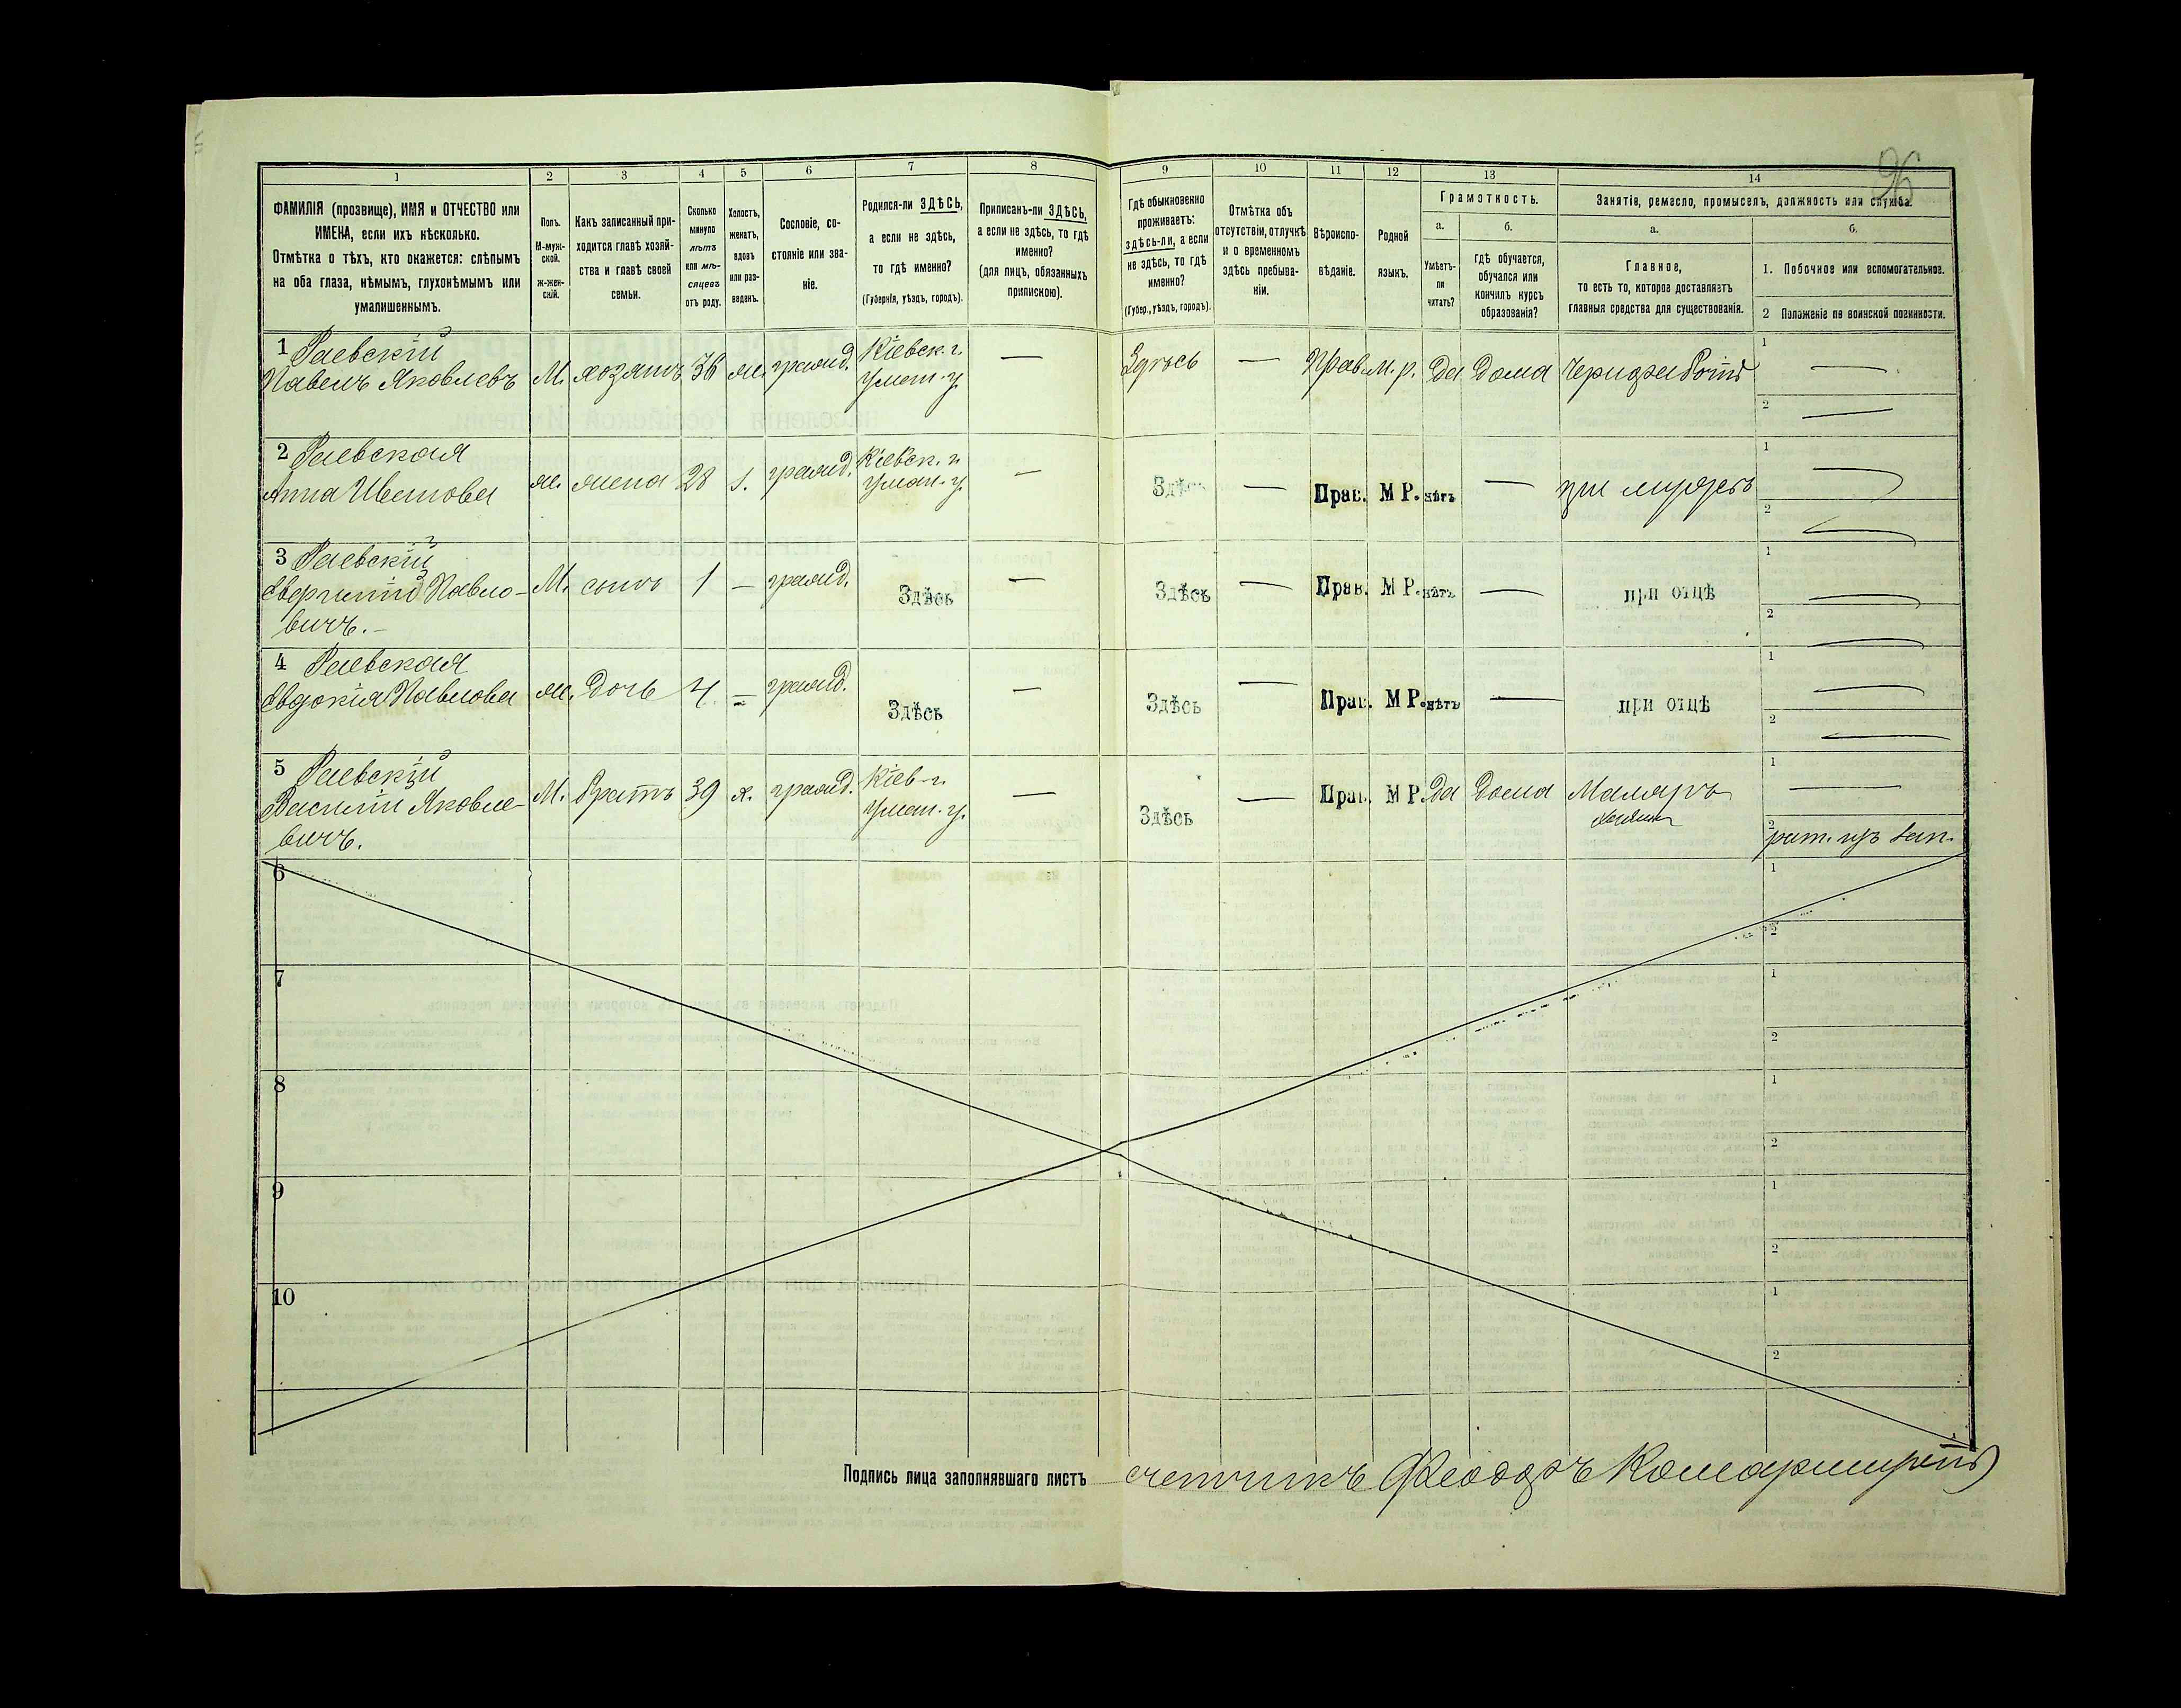 96
1 2 3 4 5 6 7 8 9 10 11 12 13 14
ФАМИЛІЯ (прозвище), ИМЯ и ОТЧЕСТВО или
ИМЕНА, если ихъ нѣсколько.
Отмѣтка о тѣхъ, кто окажется: слѣпымъ
на оба глаза, нѣмымъ, глухонѣмымъ или
умалишеннымъ.
Полъ.
М-муж-
ской.
ж-жен-
скій.
Какъ записанный при-
ходится главѣ хозяй-
ства и главѣ своей
семьи.
Сколько
минуло
лѣтъ
или мѣ-
сяцевъ
отъ роду.
Холостъ,
женатъ,
вдовъ
или раз-
веденъ.
Сословіе, со-
стояніе или зва-
ніе.
Родился-ли ЗДѢСЬ,
а если не здѣсь,
то гдѣ именно?
(Губернія, уѣздъ, городъ).
Приписанъ-ли ЗДѢСЬ,
а если не здѣсь, то гдѣ
именно?
(для лицъ, обязанныхъ
припискою).
Гдѣ обыкновенно
проживаетъ:
здѣсь-ли, а если
не здѣсь, то гдѣ
именно?
(Губер., уѣздъ, городъ).
Отмѣтка объ
отсутствіи, отлучкѣ
и о временномъ
здѣсь пребыва-
ніи.
Вѣроиспо-
вѣданіе.
Родной
языкъ.
Грамотность.
а.
Умѣетъ-
ли
читать?
б.
гдѣ обучается,
обучался или
кончилъ курсъ
образованія?
Занятіе, ремесло, промыселъ, должность или служба.
а.
Главное,
то есть то, которое доставляетъ
главныя средства для существованія.
б.
1. Побочное или вспомогательное.
2 Положеніе по воинской повинности.
1 Раевскій
Павелъ Яковлевъ М. хозяинъ 36 ж. гражд. Кіевск. г. Уман. у. — Здѣсь — Прав. м. р. да дома 1 — 2 —
2 Раевская
Анна Иванова ж. жена 28 з. гражд. Кіевск. г. Уман. у. — Здѣсь — Прав. М Р. нѣтъ — при мужѣ 1 — 2 —
3 Раевскій
Павло- М. сынъ 1 — гражд. Здѣсь — Здѣсь — Прав. М Р. нѣтъ — при отцѣ 1 — 2 —
вичъ.
4 Раевская
Евдокія Павлова ж. дочь 4 — гражд. Здѣсь — Здѣсь — Прав. М Р. нѣтъ — при отцѣ 1 — 2 —
5 Раевскій
Василій Яковле- М. братъ 39 х. гражд. Кіев. г. Уман. у. — Здѣсь — Прав. М Р. да дома Маляръ 1 —
вичъ. хозяинъ 2 рат. изъ зап.
6 1 2
7 1 2
8 1 2
9 1 2
10 1 2
Подпись лица заполнявшаго листъ счетчикъ Феодоръ